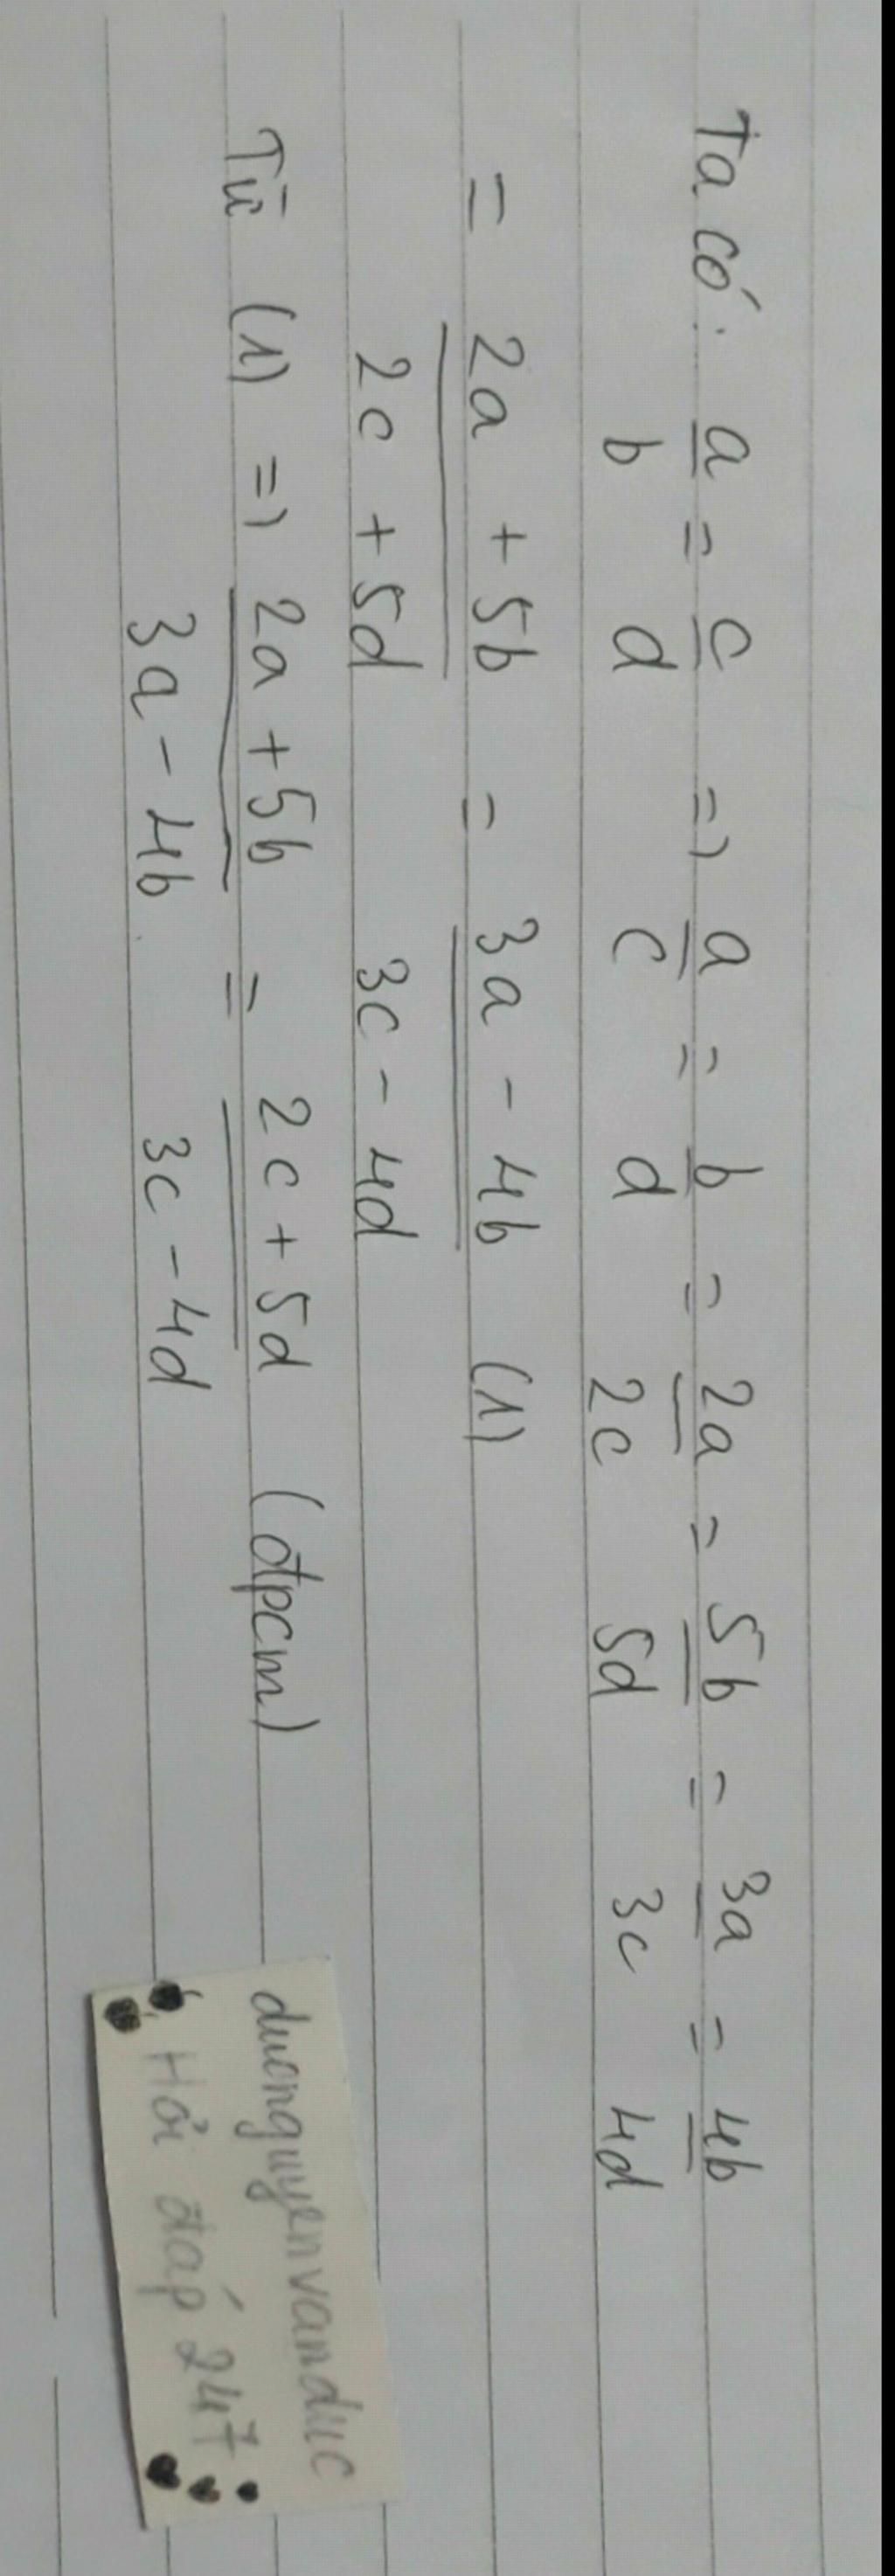 Ta có: a/b = c/d => a/c = b/d = 2a/2c = 5b/5d = 3a/3c = 4b/4d
= (2a + 5b)/(2c + 5d) = (3a - 4b)/(3c - 4d) (1)
Từ (1) => (2a + 5b)/(3a - 4b) = (2c + 5d)/(3c - 4d) (đpcm)
duongnuyenvanduc
Hỏi đáp 247